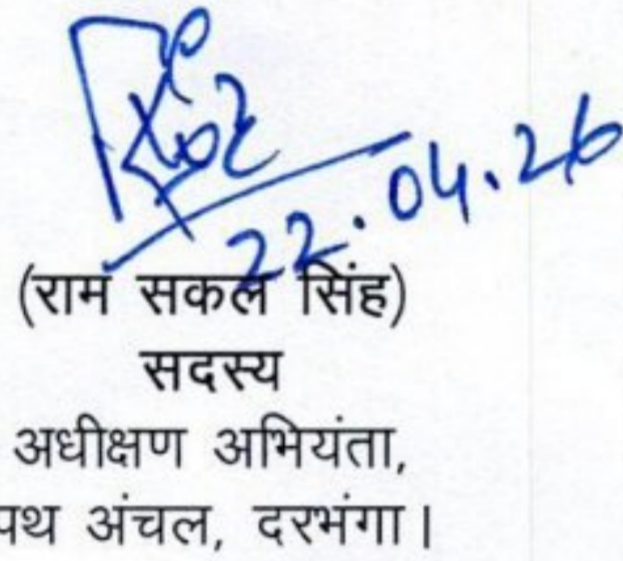 22.04.26
(राम सकल सिंह)
सदस्य
अधीक्षण अभियंता,
पथ अंचल, दरभंगा।